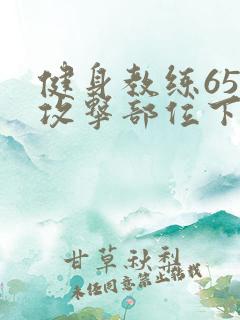 健身教练65
攻击部位下
甘草秋梨
未经同意禁止转载